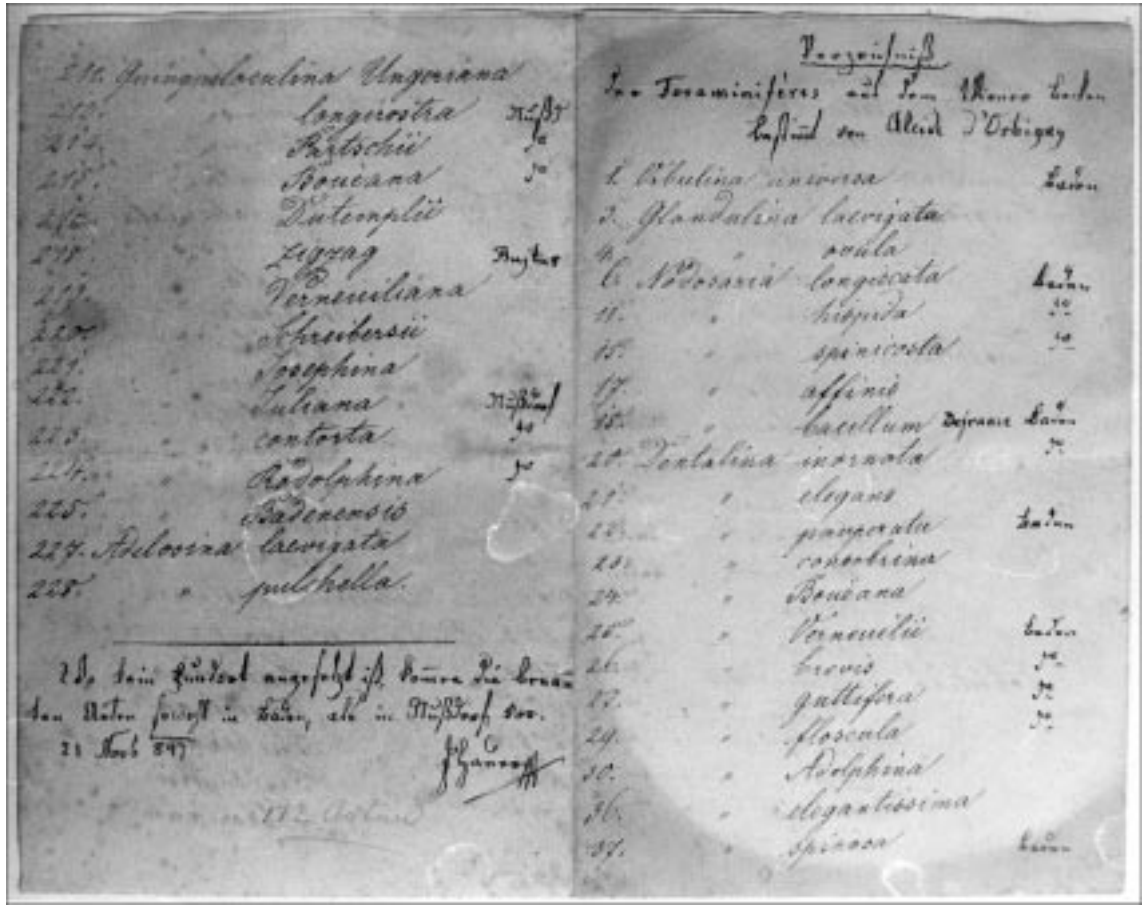 Quinqueloculina Ungeriana
longirostra Nußd
214. " Partschii do
215. " Boueana do
216. " Dutemplii
218. " zigzag Bujtur
219. " Verneuiliana
220. " Schreibersii
221. " Josephina
222. " Juliana Nußdorf
223. " contorta do
224. " Rodolphina do
225. " Badenensis
227. Adelosina laevigata
228. " pulchella.
Wo kein Fundort angesetzt ist, kommen die benann
ten Arten sowohl in Baden, als in Nußdorf vor.
21 Novb 847
JHauer
172 Arten
Verzeichniß
der Foraminiféres aus dem Wiener Becken
bestimmt von Alcide d'Orbigny
1. Orbulina universa Baden
3. Glandulina laevigata
4. " ovula
6. Nodosaria longiscata Baden
11. " hispida do
15. " spinicosta do
17. " affinis
18. " bacillum Baden
20. Dentalina inornata do
21. " elegans
22. " pauperata Baden
23. " consobrina
24. " Boueana
25. " Verneuilii Baden
26. " brevis do
27. " guttifera do
29. " floscula do
30. " Adolphina
36. " elegantissima
37. " spinosa Baden